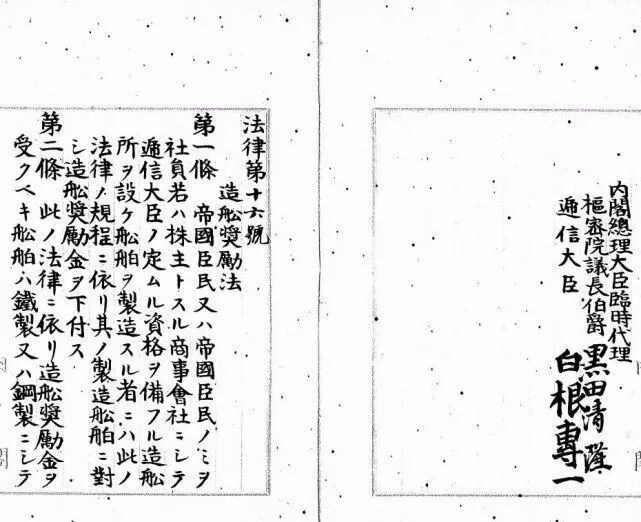 内閣總理大臣臨時代理
樞密院議長伯爵 黒田清隆
遞信大臣 白根專一
法律第十六號
造舩奬勵法
第一條 帝國臣民又ハ帝國臣民ノミヲ
社員若ハ株主トスル商事會社ニシテ
遞信大臣ノ定ムル資格ヲ備フル造舩
所ヲ設ケ舩舶ヲ製造スル者ニハ此ノ
法律ノ規程ニ依リ其ノ製造舩舶ニ對
シ造舩奬勵金ヲ下付ス
第二條 此ノ法律ニ依リ造舩奬勵金ヲ
受クベキ舩舶ハ鐵製又ハ鋼製ニシテ